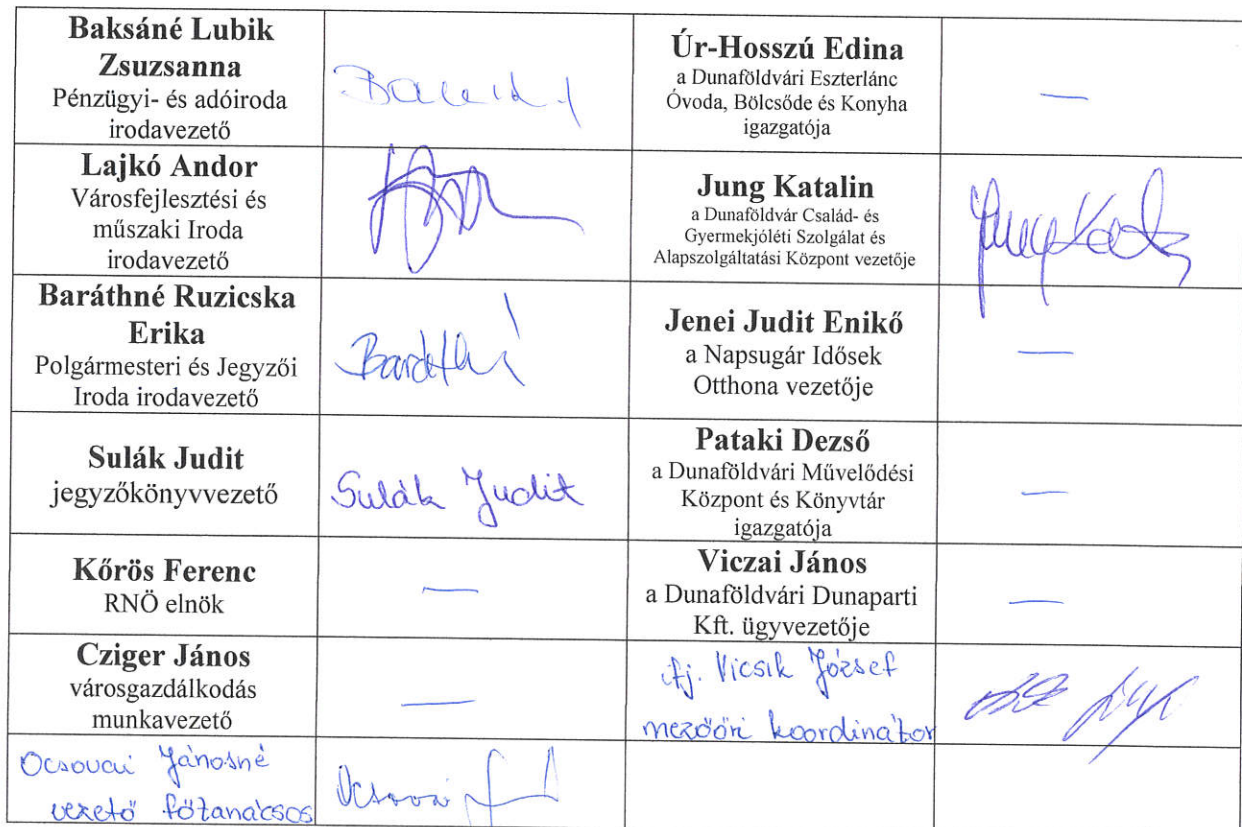 Baksáné Lubik
Zsuzsanna
Pénzügyi- és adóiroda
irodavezető
Úr-Hosszú Edina
a Dunaföldvári Eszterlánc
Óvoda, Bölcsőde és Konyha
igazgatója
—
Lajkó Andor
Városfejlesztési és
műszaki Iroda
irodavezető
Jung Katalin
a Dunaföldvár Család- és
Gyermekjóléti Szolgálat és
Alapszolgáltatási Központ vezetője
Baráthné Ruzicska
Erika
Polgármesteri és Jegyzői
Iroda irodavezető
Jenei Judit Enikő
a Napsugár Idősek
Otthona vezetője
—
Sulák Judit
jegyzőkönyvvezető
Sulák Judit
Pataki Dezső
a Dunaföldvári Művelődési
Központ és Könyvtár
igazgatója
—
Kőrös Ferenc
RNÖ elnök
—
Viczai János
a Dunaföldvári Dunaparti
Kft. ügyvezetője
—
Cziger János
városgazdálkodás
munkavezető
—
ifj. Vicsik József
mezőőri koordinátor
Ocsovai Jánosné
vezető főtanácsos
Ocsovai